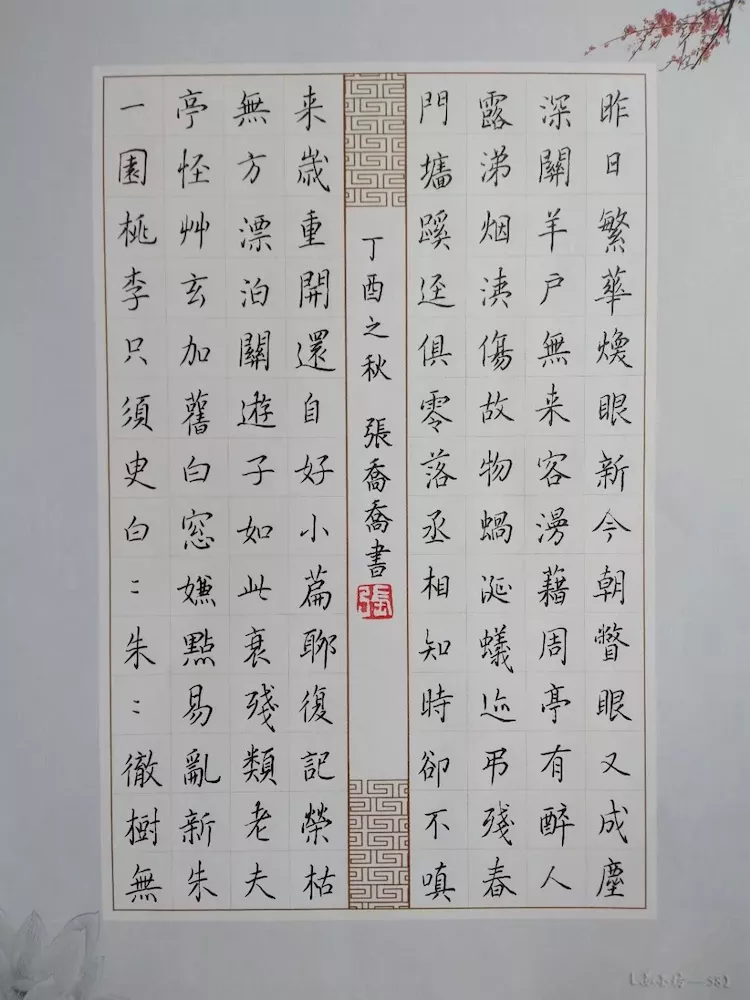 昨日繁華煥眼新今朝瞥眼又成塵
深關羊戶無来客漫藉周亭有醉人
露涕烟洟傷故物蝸涎蟻迹弔殘春
門墻蹊逕俱零落丞相知時卻不嗔
一園桃李只須臾白〻朱〻徹樹無
亭怪艸玄加舊白窓嫌點易亂新朱
無方漂泊關遊子如此衰殘類老夫
来歲重開還自好小篇聊復記榮枯
丁酉之秋 張喬喬書
張